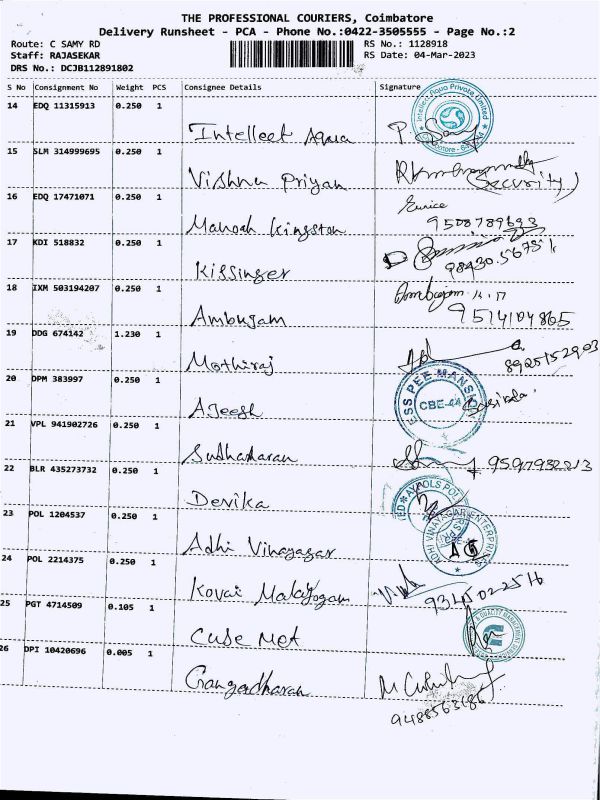 THE PROFESSIONAL COURIERS, Coimbatore
Delivery Runsheet - PCA - Phone No.:0422-3505555 - Page No.:2
Route: C SAMY RD
RS No.: 1128918
Staff: RAJASEKAR
RS Date: 04-Mar-2023
DRS No.: DCJB112891802
S No Consignment No Weight PCS Consignee Details Signature
14 EDQ 11315913 0.250 1
Intelleet Aqua
Intellect Aqua Private Limited
15 SLM 314999695 0.250 1
Vishnu Priyan
(Security)
16 EDQ 17471071 0.250 1
Eunice
Manoah Kingston
9508789693
17 KDI 518832 0.250 1
Kissinger
18 IXM 503194207 0.250 1
Ambujam
9514104865
19 DDG 674142 1.230 1
Mothiraj
8925152903
20 DPM 383997 0.250 1
ESS PEE MANSI
CBE-44
Ajeesh
21 VPL 941902726 0.250 1
Sudhakaran
9597932213
22 BLR 435273732 0.250 1
Devika
23 POL 1204537 0.250 1
ADHI VINAYAGAR ENTERPRISES
Adhi Vinayagar
24 POL 2214375 0.250 1
Kovai Malaijogam
25 PGT 4714509 0.105 1
Cube Met
26 DPI 10420696 0.005 1
Gangadharan
9488563186